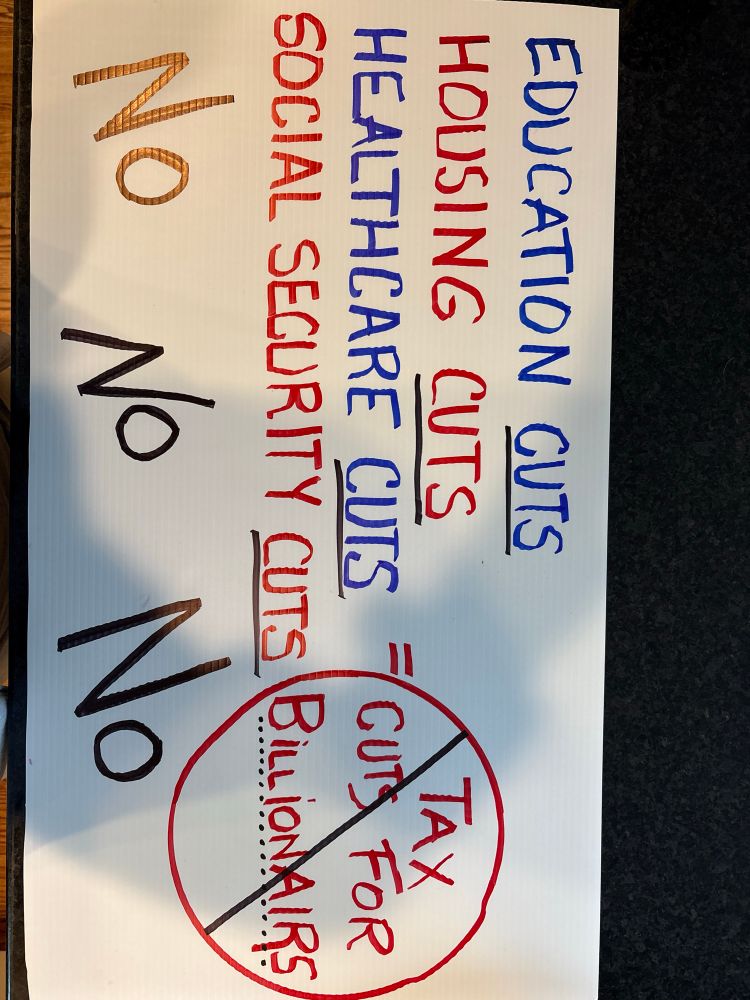 EDUCATION CUTS
HOUSING CUTS
HEALTHCARE CUTS
SOCIAL SECURITY CUTS
=
TAX
CUTS FOR
BILLIONAIRS
NO NO NO